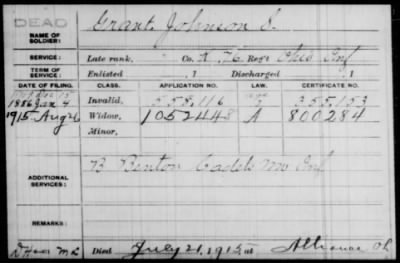 DEAD
Grant, Johnson S.
NAME OF SOLDIER:
SERVICE: Late rank, Co. K 76 Reg't Ohio Inf
TERM OF SERVICE: Enlisted 1 Discharged 1
DATE OF FILING. CLASS. APPLICATION NO. LAW. CERTIFICATE NO.
1886 Jan 4 Invalid, 558,116 355,153
1915 Aug 26 Widow, 1052448 A 800284
Minor,
ADDITIONAL SERVICES: B Benton Cadets Mo Inf
REMARKS:
Died July 21, 1915 at Alliance Oh